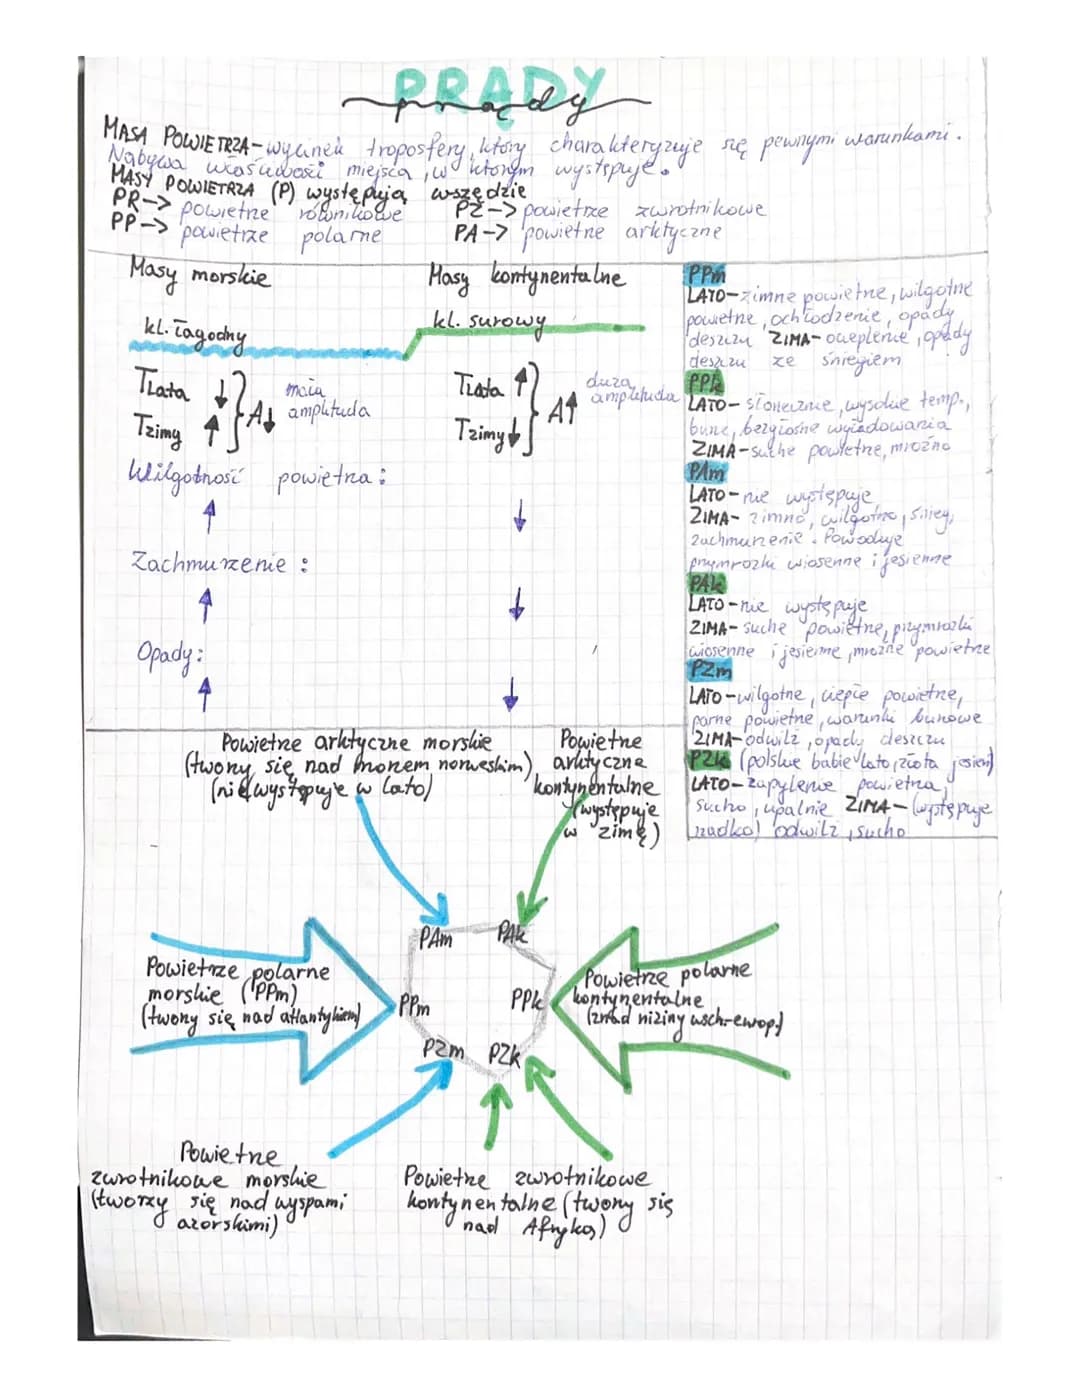 PRĄDY
prądy
MASA POWIETRZA - wycinek troposfery, który charakteryzuje się pewnymi warunkami.
Nabywa właściwości miejsca, w którym występuje.
MASY POWIETRZA (P) występują wszędzie
PR -> powietrze równikowe PZ -> powietrze zwrotnikowe
PP -> powietrze polarne PA -> powietrze arktyczne
Masy morskie
kl. łagodny
Tlata ↓ } A↓ mała
Tzimy ↑ amplituda
Masy kontynentalne
kl. surowy
Tlata ↑ } A↑ duża
Tzimy ↓ amplituda
Wilgotność powietrza:
↑ ↓
Zachmurzenie:
↑ ↓
Opady:
↑ ↓
PPm
LATO - zimne powietrze, wilgotne
powietrze, ochłodzenie, opady
deszczu ZIMA - ocieplenie, opady
deszczu ze śniegiem
PPk
LATO - słonecznie, wysokie temp.,
burze, bezgłośne wyładowania
ZIMA - suche powietrze, mroźno
PAm
LATO - nie występuje
ZIMA - zimno, wilgotno, śnieg,
zachmurzenie. Powoduje
przymrozki wiosenne i jesienne
PAk
LATO - nie występuje
ZIMA - suche powietrze, przymrozki
wiosenne i jesienne, mroźne powietrze
PZm
LATO - wilgotne, ciepłe powietrze,
parne powietrze, warunki burzowe
ZIMA - odwilż, opady deszczu
PZk (polskie babie lato, złota jesień)
LATO - zapylenie powietrza,
sucho, upalnie ZIMA - (występuje
rzadko) odwilż, sucho
Powietrze arktyczne morskie
(tworzy się nad morzem norweskim)
(nie występuje w lato)
Powietrze
arktyczne
kontynentalne
(występuje
w zimę)
PAm PAk
Powietrze polarne
morskie (PPm)
(tworzy się nad atlantykiem)
PPm PPk
Powietrze polarne
kontynentalne
(znad niziny wsch-europ.)
PZm PZk
Powietrze
zwrotnikowe morskie
(tworzy się nad wyspami
azorskimi)
Powietrze zwrotnikowe
kontynentalne (tworzy się
nad Afryką)